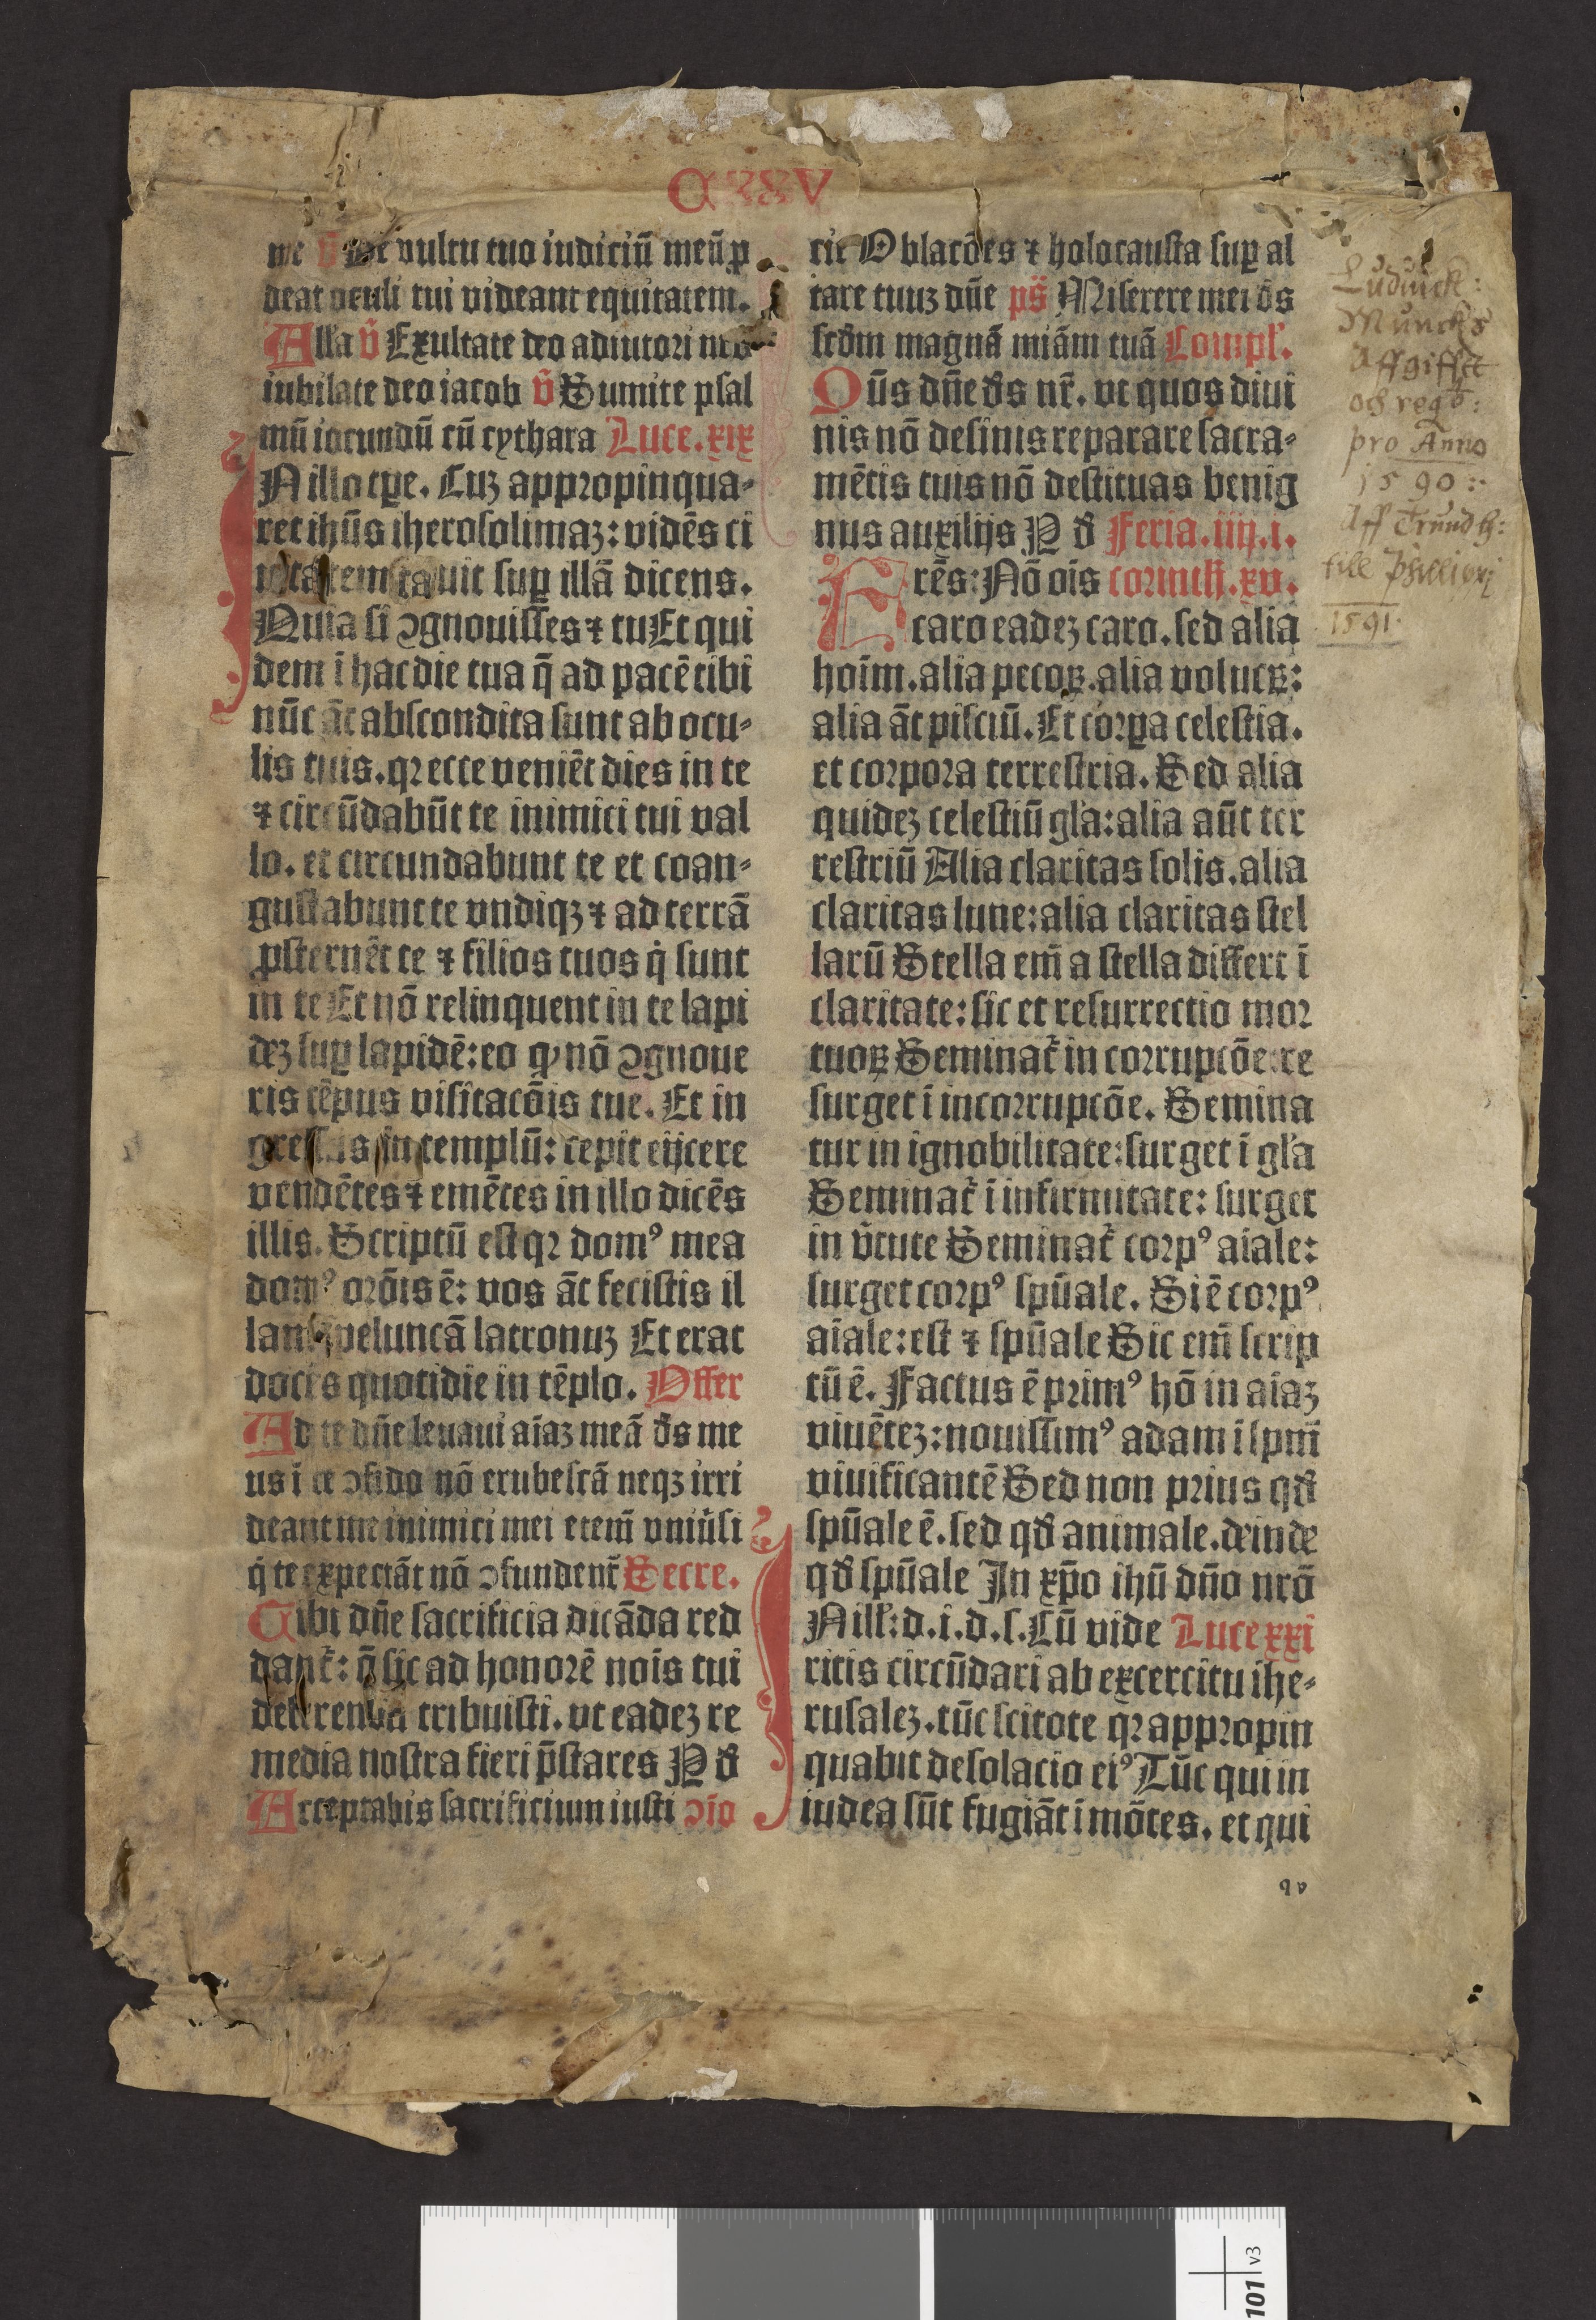 CXXV
me v̄ De vultu tuo iudiciū meū ꝓ
deat oculi tui videant equitatem.
Alla v̄ Exultate deo adiutori nr̄o
iubilate deo iacob v̄ Sumite psal
mū iocundū cū cythara Luce.xix
IN illo tꝑe. Cuꝫ appropinqua⸗
ret ihūs iherosolimaꝫ: vidēs ci
uitatem fleuit suꝑ illā dicens.
Quia si ꝯgnouisses ⁊ tu Et qui
dem ī hac die tua q̄ ad pacē tibi
nūc āt abscondita sunt ab ocu⸗
lis tuis. qꝛ ecce veniēt dies in te
⁊ circūdabūt te inimici tui val
lo. et circundabunt te et coan⸗
gustabunt te vndiqꝫ ⁊ ad terrā
ꝓsternēt te ⁊ filios tuos q̇ sunt
in te Et nō relinquent in te lapi
deꝫ suꝑ lapidē: eo ꝙ nō ꝯgnoue
ris tēpus visitacōis tue. Et in
gressus in templū: cepit eijcere
vendētes ⁊ emētes in illo dicēs
illis. Scriptū est qꝛ domꝰ mea
domꝰ orōis ē: vos āt fecistis il
lam speluncā latronuꝫ Et erat
docēs quotidie in tēplo. Offer
Ad te dn̄e leuaui aīaꝫ meā ds̄ me
us ī te ꝯfido nō erubescā neqꝫ irri
deant me inimici mei etem̄ vniūsi
q̇ te expectāt nō ꝯfundent̄ Secre.
Tibi dn̄e sacrificia dicāda red
dant̄: q̄ sic ad honorē nois tui
deferenda tribuisti. vt eadeꝫ re
media nostra fieri p̄stares P d̄
Acceptabis sacrificium iusti ꝯio
cie Oblatōes ⁊ holocausta suꝑ al
tare tuuꝫ dn̄e ps̄ Miserere mei ds̄
scd̄m magnā miām tuā Compl̄.
Qūs dn̄e ds̄ nr̄. vt quos diui
nis nō desinis reparare sacra⸗
mētis tuis nō destituas benig
nus auxilijs P d̄ Feria.iiij.i.
Frēs: Nō oīs corinth.xv.
caro eadeꝫ caro. sed alia
hoīm. alia pecoꝝ. alia volucꝝ:
alia āt pisciū. Et corꝑa celestia.
et corpora terrestria. Sed alia
quideꝫ celestiū gl̄a: alia aūt ter
restriū Alia claritas solis. alia
claritas lune: alia claritas stel
larū Stella em̄ a stella differt ī
claritate: sic et resurrectio mor
tuoꝝ Seminat̄ in corrupcōe: re
surget ī incorrupcōe. Semina
tur in ignobilitate: surget ī gl̄a
Seminat̄ ī infirmitate: surget
in v̄tute Seminat̄ corpꝰ aīale:
surget corpꝰ spūale. Si ē corpꝰ
aīale: est ⁊ spūale Sic em̄ scrip
tū ē. Factus ē primꝰ hō in aīaꝫ
viuēteꝫ: nouissimꝰ adam ī spm̄
viuificantē Sed non prius qd̄
spūale ē. sed qd̄ animale. deinde
qd̄ spūale In xp̄o ihū dn̄o nrō
IN ill̄: d.i.d.s. Cū vide Luce xxi
ritis circūdari ab excercitu ihe⸗
rusaleꝫ. tūc scitote qꝛ appropin
quabit desolacio eiꝰ Tūc qui in
iudea sūt fugiāt ī mōtes. et qui
q v
Luduick:
Munchs
Affgifftt
och regb:
pro Anno
1590:
Aff Trundh:
till Philippi
1591